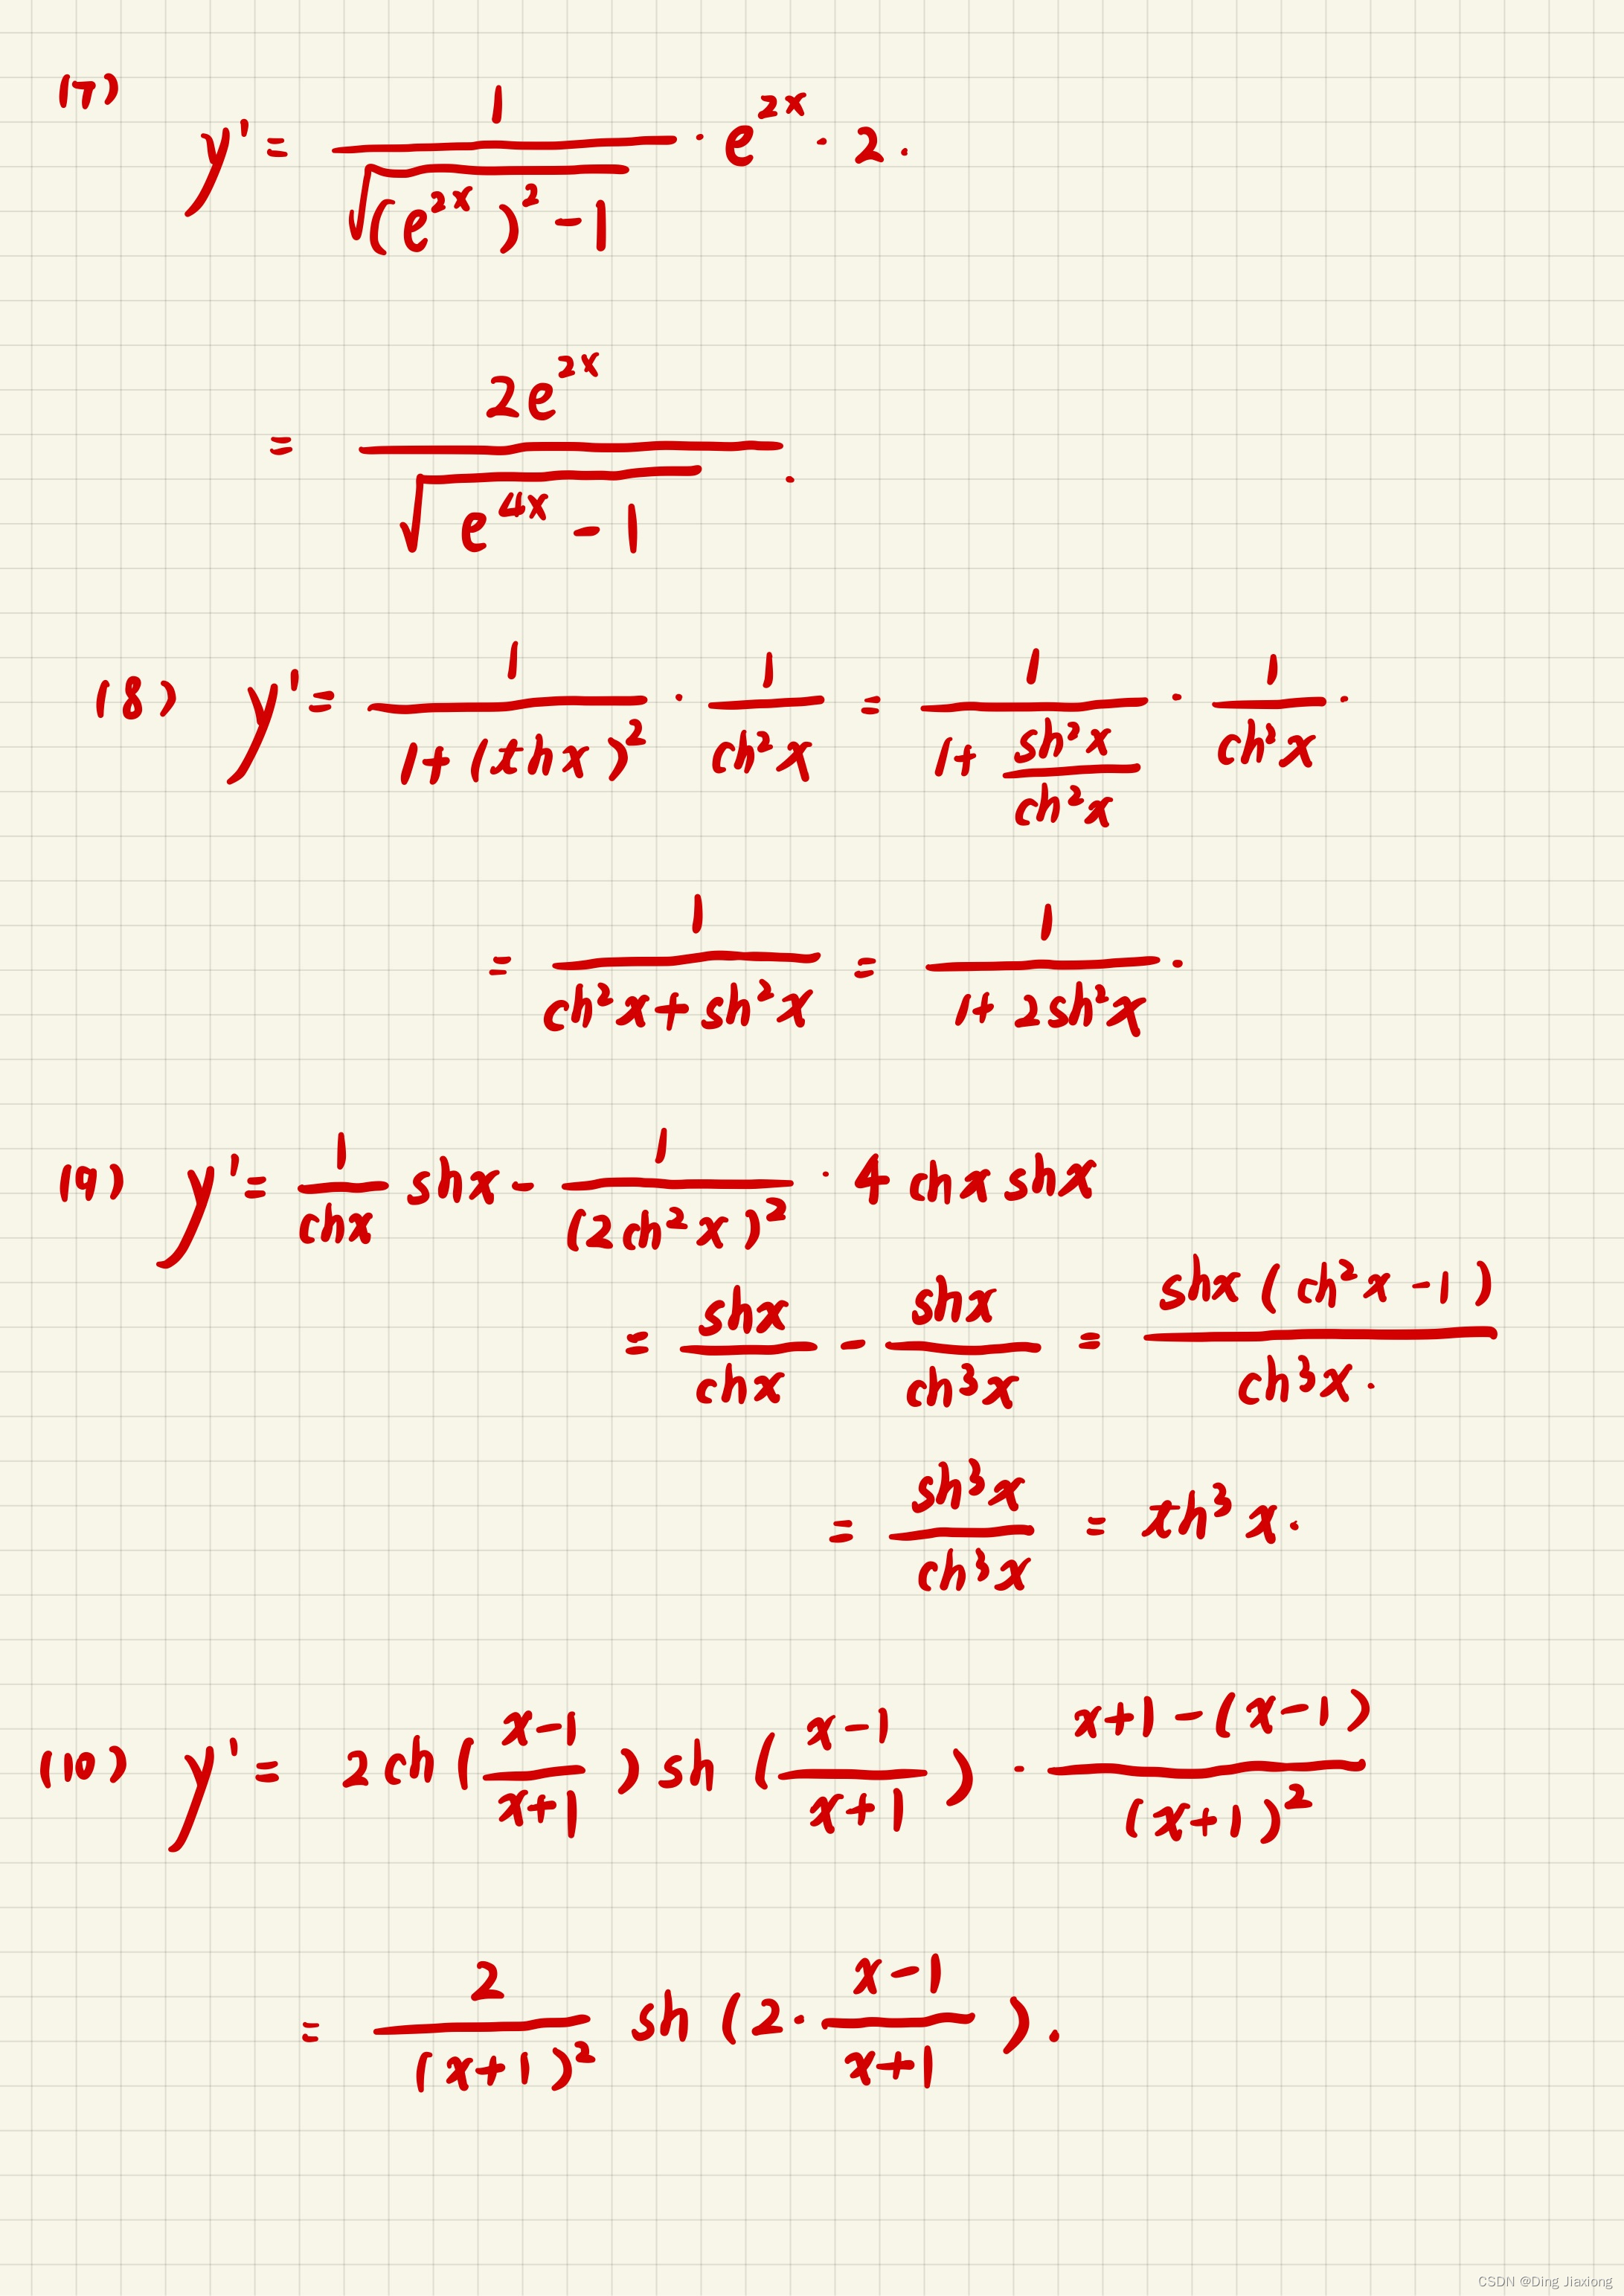 (7) y' = \frac{1}{\sqrt{(e^{2x})^2 - 1}} · e^{2x} · 2.
= \frac{2e^{2x}}{\sqrt{e^{4x} - 1}}.
(8) y' = \frac{1}{1+(thx)^2} · \frac{1}{ch^2x} = \frac{1}{1+\frac{sh^2x}{ch^2x}} · \frac{1}{ch^2x}.
= \frac{1}{ch^2x + sh^2x} = \frac{1}{1+2sh^2x}.
(9) y' = \frac{1}{chx} shx - \frac{1}{(2ch^2x)^2} · 4 chx shx
= \frac{shx}{chx} - \frac{shx}{ch^3x} = \frac{shx(ch^2x-1)}{ch^3x}.
= \frac{sh^3x}{ch^3x} = th^3x.
(10) y' = 2ch(\frac{x-1}{x+1}) sh(\frac{x-1}{x+1}) · \frac{x+1-(x-1)}{(x+1)^2}
= \frac{2}{(x+1)^2} sh(2·\frac{x-1}{x+1}).
CSDN @Ding Jiaxiong